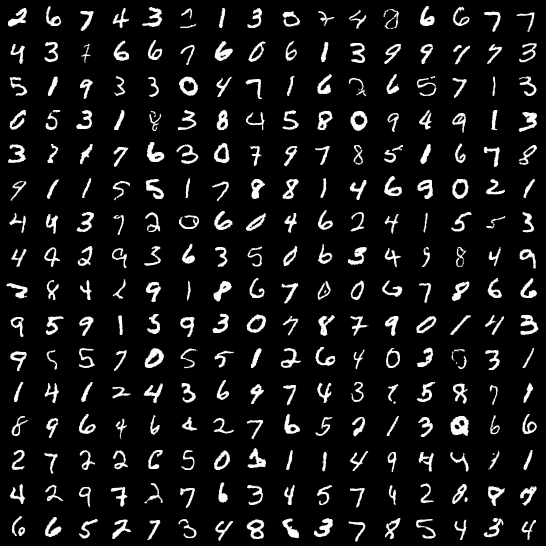 2 6 7 4 3 2 1 3 0 7 4 8 6 6 7 7
4 3 7 6 6 7 6 0 6 1 3 9 9 7 7 3
5 1 9 3 3 0 4 7 1 6 2 6 5 7 1 3
0 5 3 1 8 3 8 4 5 8 0 9 4 9 1 3
3 7 6 3 0 7 9 7 8 5 1 6 7 8
9 1 1 5 5 1 7 8 8 1 4 6 9 0 2 1
4 4 3 9 2 0 6 0 4 6 2 4 1 5 5 3
4 4 2 9 3 6 3 5 0 6 3 4 9 8 4 9
2 8 4 2 9 1 8 6 7 0 0 6 7 8 6 6
9 5 9 1 5 9 3 0 7 8 7 9 0 1 4 3
9 5 5 7 0 5 5 1 2 6 4 0 3 0 3 1
1 4 1 2 4 3 6 9 7 4 3 7 5 8 7 1
8 9 6 4 6 4 2 7 6 5 2 1 3 0 6 6
2 7 2 2 6 5 0 1 1 1 4 9 4 4 1 1
4 2 9 7 2 7 6 3 4 5 7 4 2 8 8
6 6 5 2 7 3 4 8 8 3 7 8 5 4 3 4